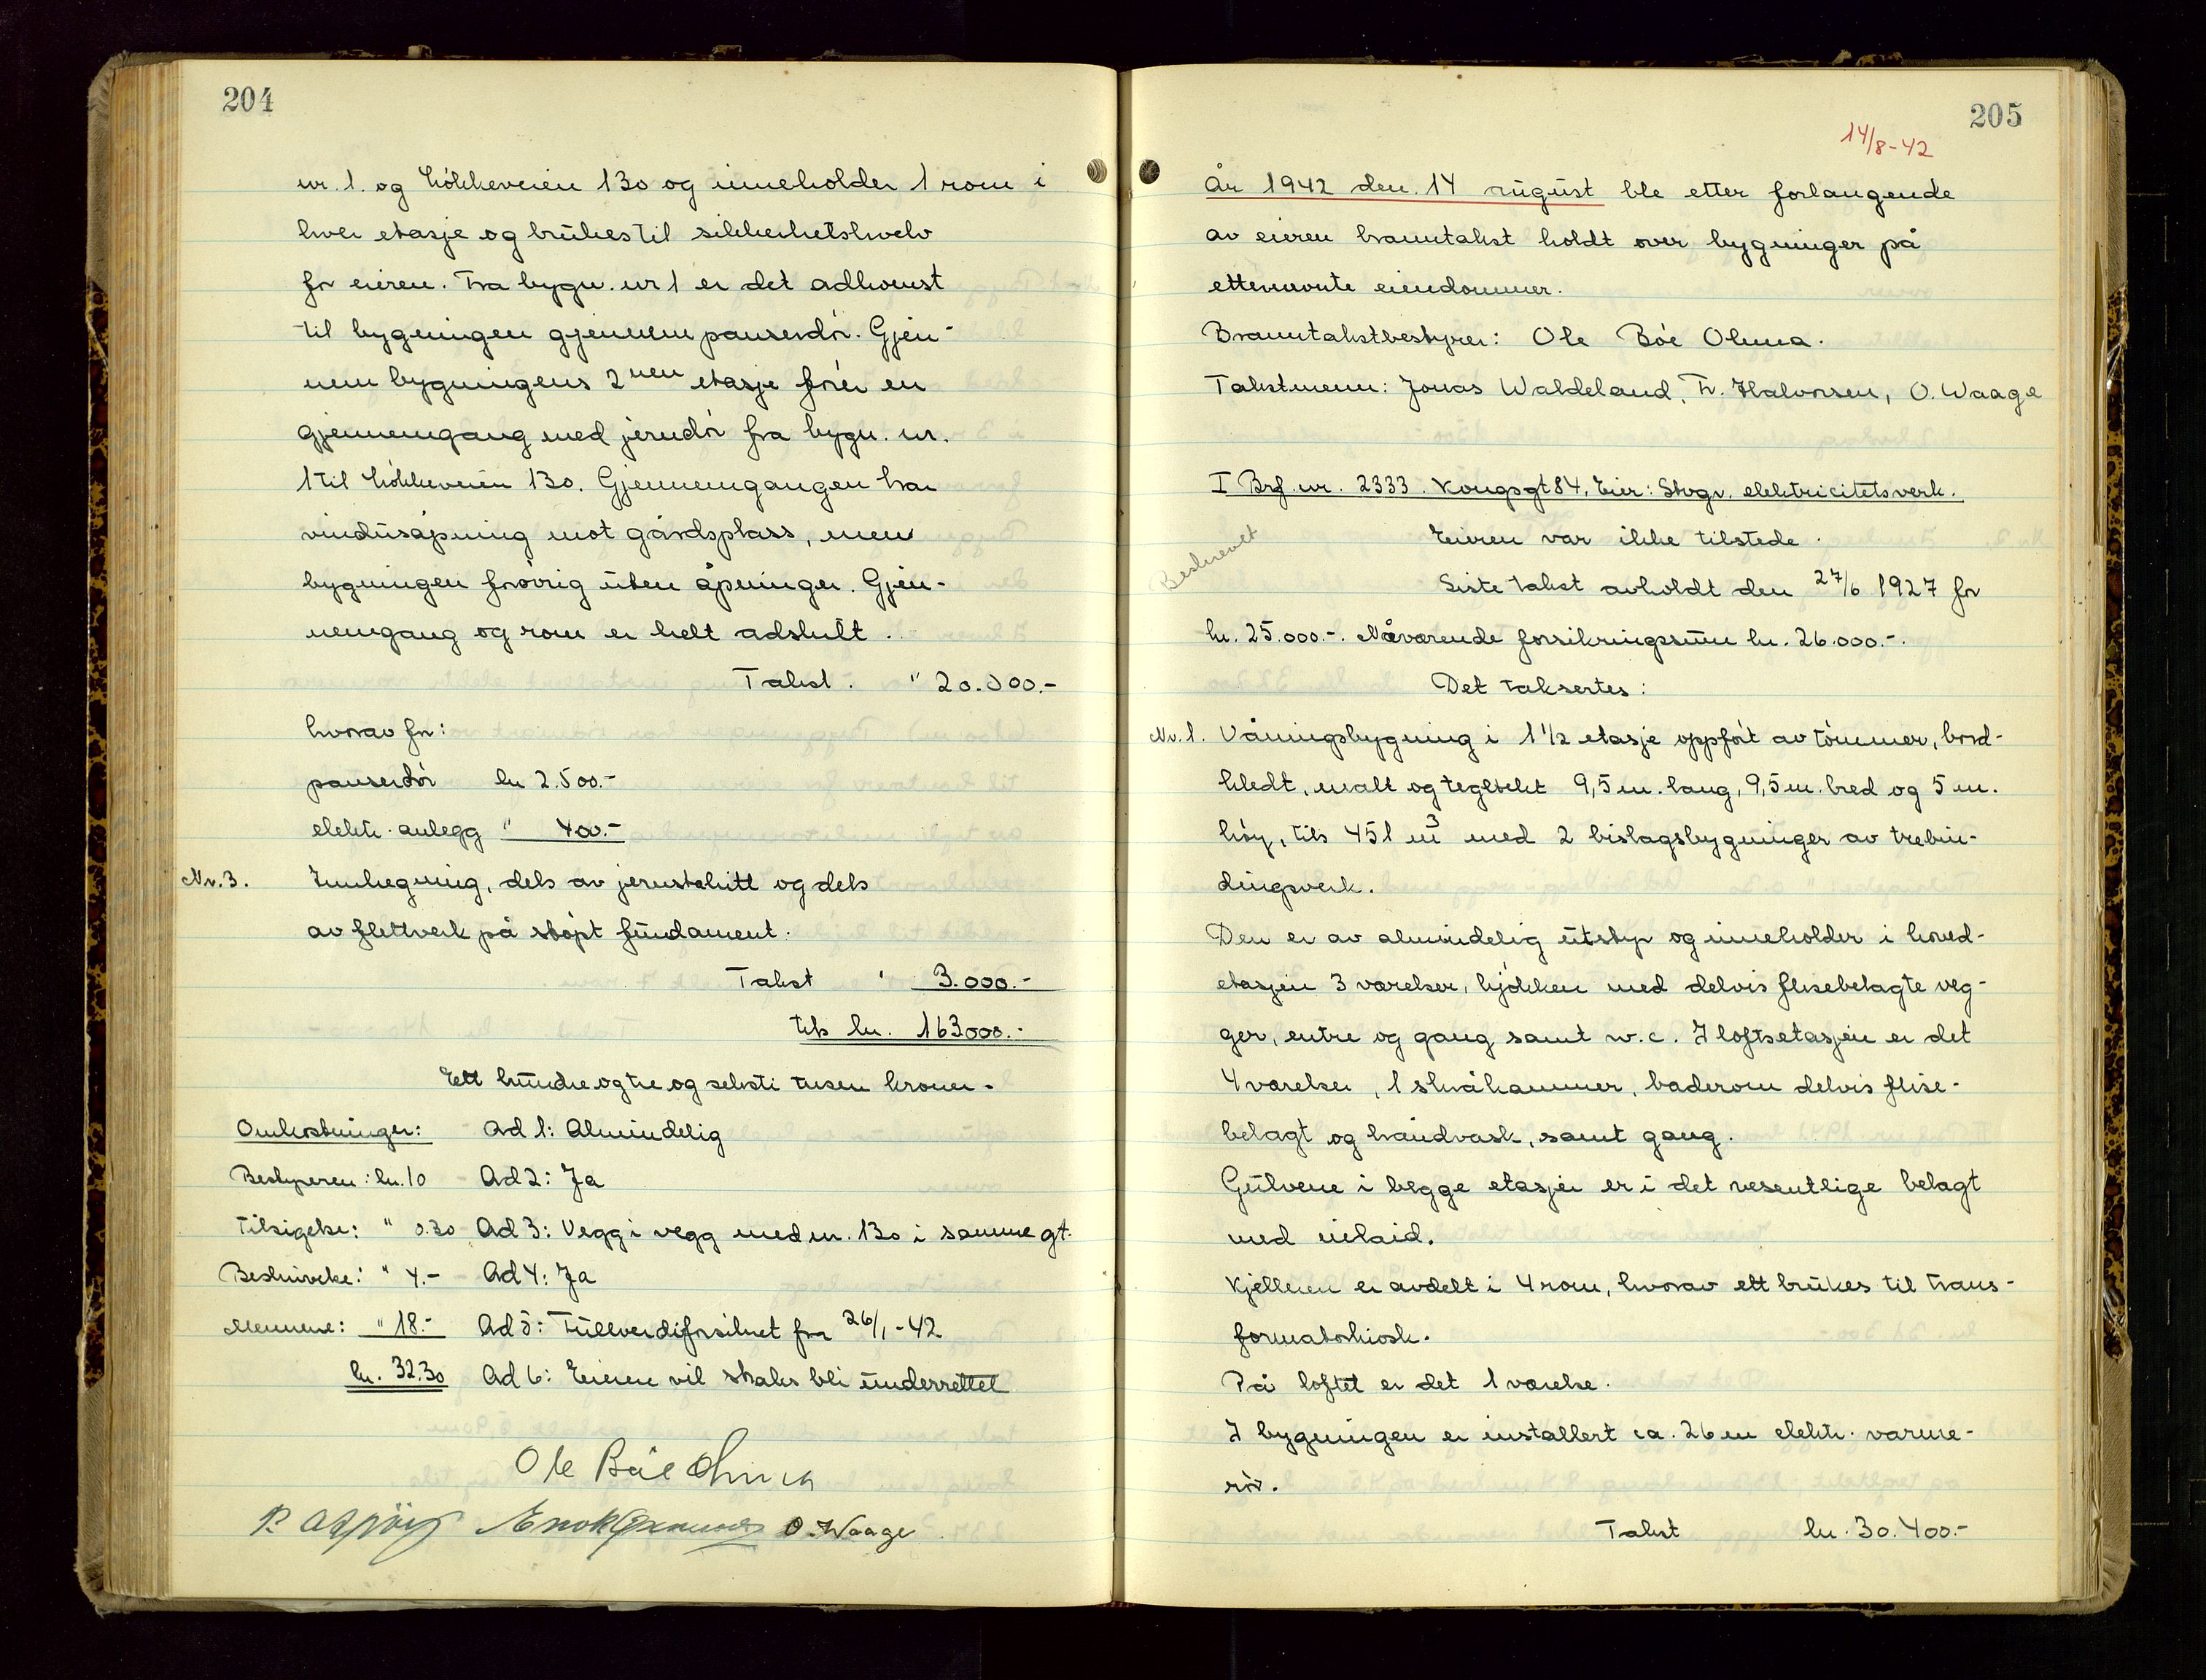 204
nr. 1. og Løkkeveien 130 og inneholder 1 rom i
hver etasje og brukes til sikkerhetshvelv
for eieren. Fra bygn. nr 1 er det adkomst
til bygningen gjennem panserdør. Gjen-
nem bygningens 2nen etasje fører en
gjennemgang med jerndør fra bygn. nr.
1 til Løkkeveien 130. Gjennemgangen har
vindusåpning mot gårdsplass, men
bygningen forøvrig uten åpninger. Gjen-
nemgang og rom er helt adskilt.
Takst. " 20.000.-
hvorav for:
panserdør kr 2.500.-
elektr. anlegg " 400.-
Nr. 3. Innhegning, dels av jernstakitt og dels
av flettverk på støpt fundament.
Takst " 3.000.-
tils kr. 163000.-
Ett hundre og tre og seksti tusen kroner-
Omkostninger: Ad 1: Almindelig
Bestyreren: kr. 10 - Ad 2: Ja
Tilsigelse: " 0.30 Ad 3: Vegg i vegg med nr. 130 i samme gt.
Beskrivelse: " 4.- Ad 4: Ja
Mennene: " 18.- Ad 5: Fullverdiforsikret fra 26/1-42
kr. 32.30 Ad 6: Eieren vil straks bli underrettet
Ole Bøe Olima
O. Waage
205
14/8-42
År 1942 den 14 august ble etter forlangende
av eieren branntakst holdt over bygninger på
etternevnte eiendommer.
Branntakstbestyrer: Ole Bøe Olima.
Takstmenn: Jonas Waldeland, Fr. Halvorsen, O. Waage
I Brf. nr. 2333. Kongsgt 84, Eier: Stvgr. elektricitetsverk.
Eieren var ikke tilstede.
Beskrevet
Siste takst avholdt den 27/6 1927 for
kr. 25.000.-. Nåværende forsikringssum kr. 26.000.-.
Det taksertes:
Nr. 1. Våningsbygning i 1 1/2 etasje oppført av tømmer, bord-
kledt, malt og tegltekt 9,5 m. lang, 9,5 m. bred og 5 m.
høy, tils 451 m3 med 2 bislagsbygninger av trebin-
dingsverk.
Den er av almindelig utstyr og inneholder i hoved-
etasjen 3 værelser, kjøkken med delvis flisebelagte veg-
ger, entre og gang samt w.c. I loftsetasjen er det
4 værelser, 1 skråkammer, baderom delvis flise-
belagt og håndvask, samt gang.
Gulvene i begge etasjer er i det vesentlige belagt
med inlaid.
Kjelleren er avdelt i 4 rom, hvorav ett brukes til trans-
formatorkiosk.
På loftet er det 1 værelse.
I bygningen er installert ca. 26 m elektr. varme-
rør.
Takst kr. 30.400.-